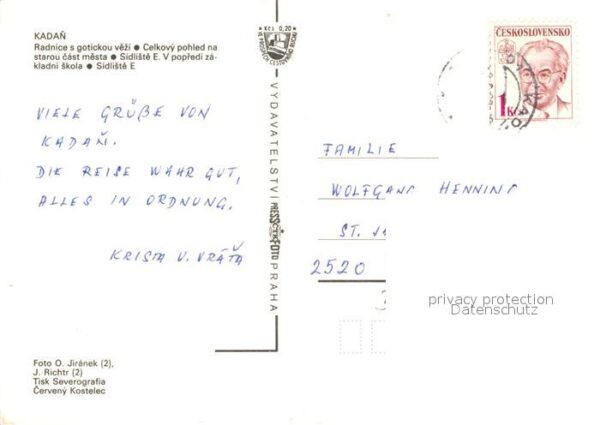 KADAŇ
Radnice s gotickou věží ● Celkový pohled na
starou část města ● Sídliště E. V popředí zá-
kladní škola ● Sídliště E
VIELE GRÜßE VON
KADAŇ.
DIE REISE WAHR GUT,
ALLES IN ORDNUNG.
KRISTA U. VRÁŤA
Foto O. Jiránek (2),
J. Richtr (2)
Tisk Severografia
Červený Kostelec
Kčs 0,20
VYDAVATELSTVÍ
PRESSFOTO
PRAHA
ČESKOSLOVENSKO
1 Kčs
FAMILIE
WOLFGANG HENNING
ST.
2520
privacy protection
Datenschutz